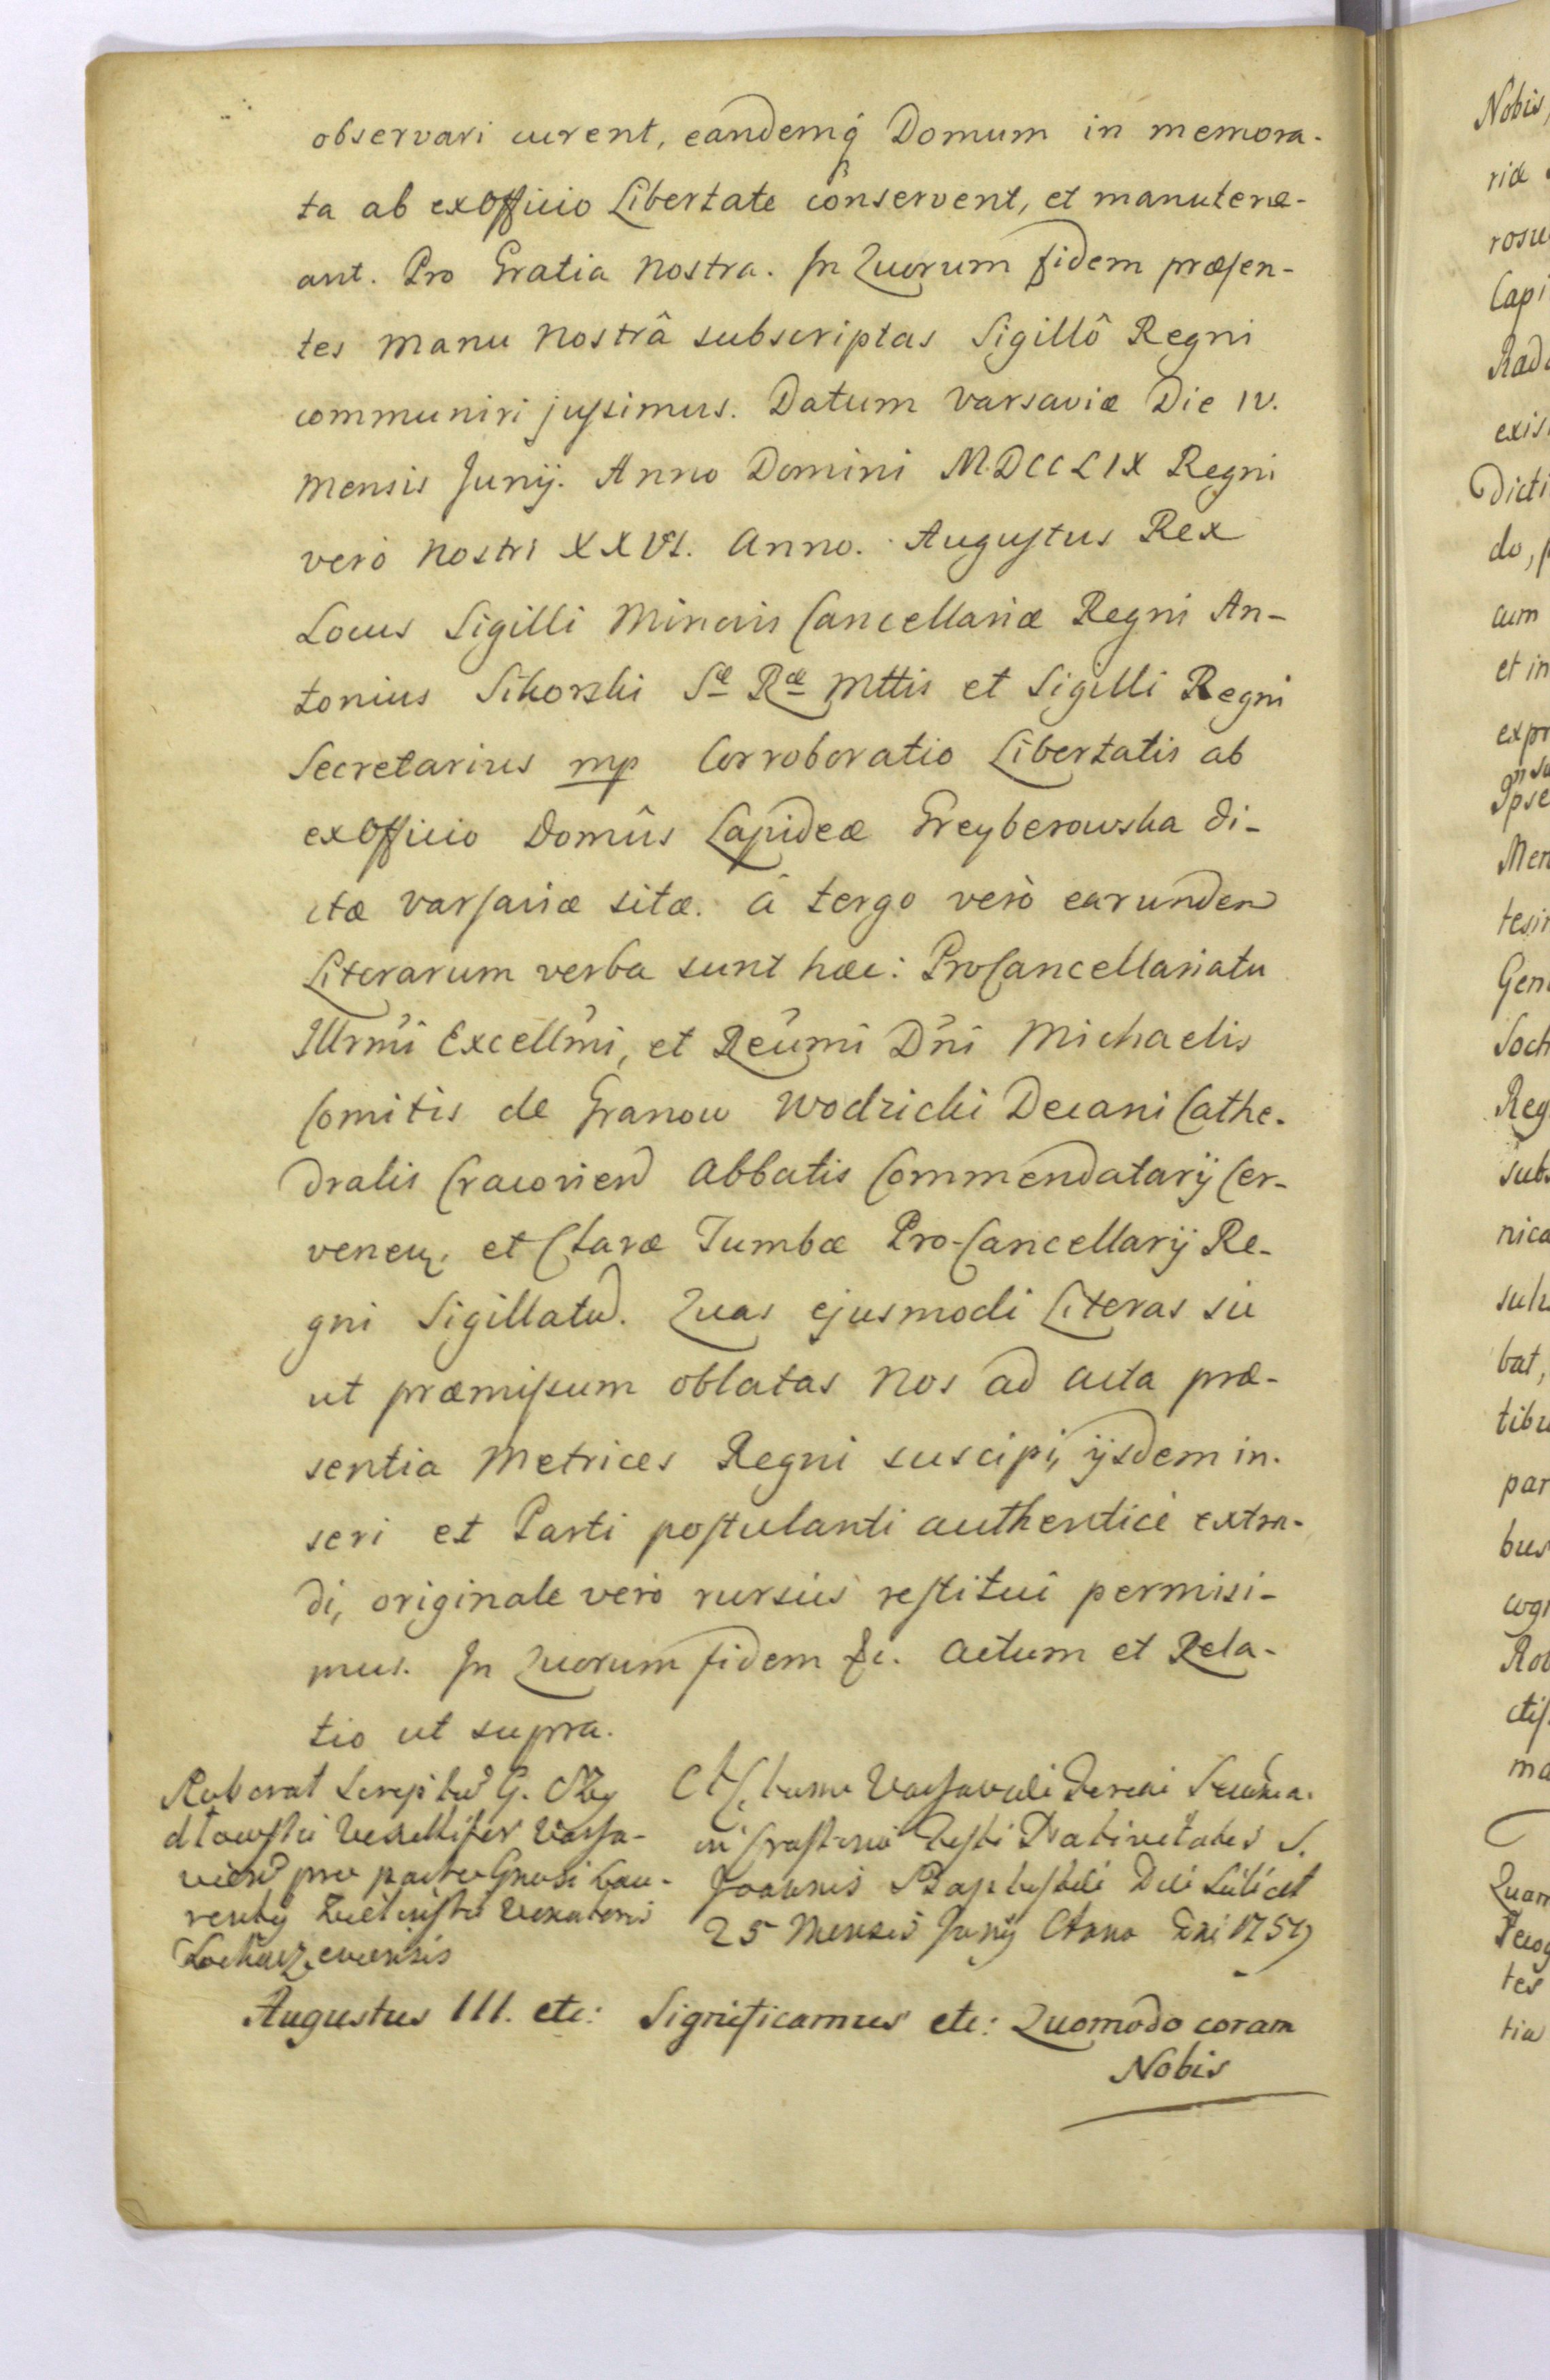 observari curent, eandemq́ Domum in memora-
ta ab exOfficio Libertate conservent, et manutene-
ant. Pro Gratia nostra. In Quorum fidem præsen-
tes manu nostrâ subscriptas Sigillô Regni
communiri jussimus. Datum varsaviæ Die IV.
mensis Junij. Anno Domini M.DCCLIX Regni
verò nostri XXVI. anno. Augustus Rex
Locus Sigilli Minoris Cancellariæ Regni An-
tonius Sikorski Sæ Ræ Mttis et Sigilli Regni
Secretarius mp Corroboratio Libertatis ab
exOfficio Domûs Lapideæ Greyberowska di-
ctæ varsaviæ sitæ. â tergo verò earunden
Literarum verba sunt hæc: ProCancellariatu
Illrmi Excellmi, et Reumi Dni Michaelis
Comitis de Granow Wodzicki Decani Cathe-
dralis Cracovien abbatis Commendatarij Cer-
venen. et Claræ Tumbæ Pro-Cancellarij Re-
gni Sigillatu. Quas ejusmodi Literas sic
ut præmissum oblatas nos ad acta præ-
sentia Metrices Regni suscipi, ijsdem in-
seri et Parti postulanti authenticè extra-
di, originale verò rursùs restitui permisi-
mus. In Quorum fidem &c. actum et Rela-
tio ut supra.
Roborat G.
Vexillifer Varsa-
vien pro parte Gnosi Lau-
rentij Venatoris
Actum Feria Secunda
in Crastino Festi Nativitatis S.
Joannis Baptistæ Die scilicet
25 Mensis Junij Anno Dni 1759
Augustus III. etc: Significamus etc: Quomodo coram
Nobis
Nobis,
riæ
rosu
Capi
Rad
exis
Dicti
do,
cum
et in
expr
Ipse
Men
tesi
Gen
Soch
Reg
sub
nica
bat,
tibu
par
bus
cogn
ma
Quam
tes
tia